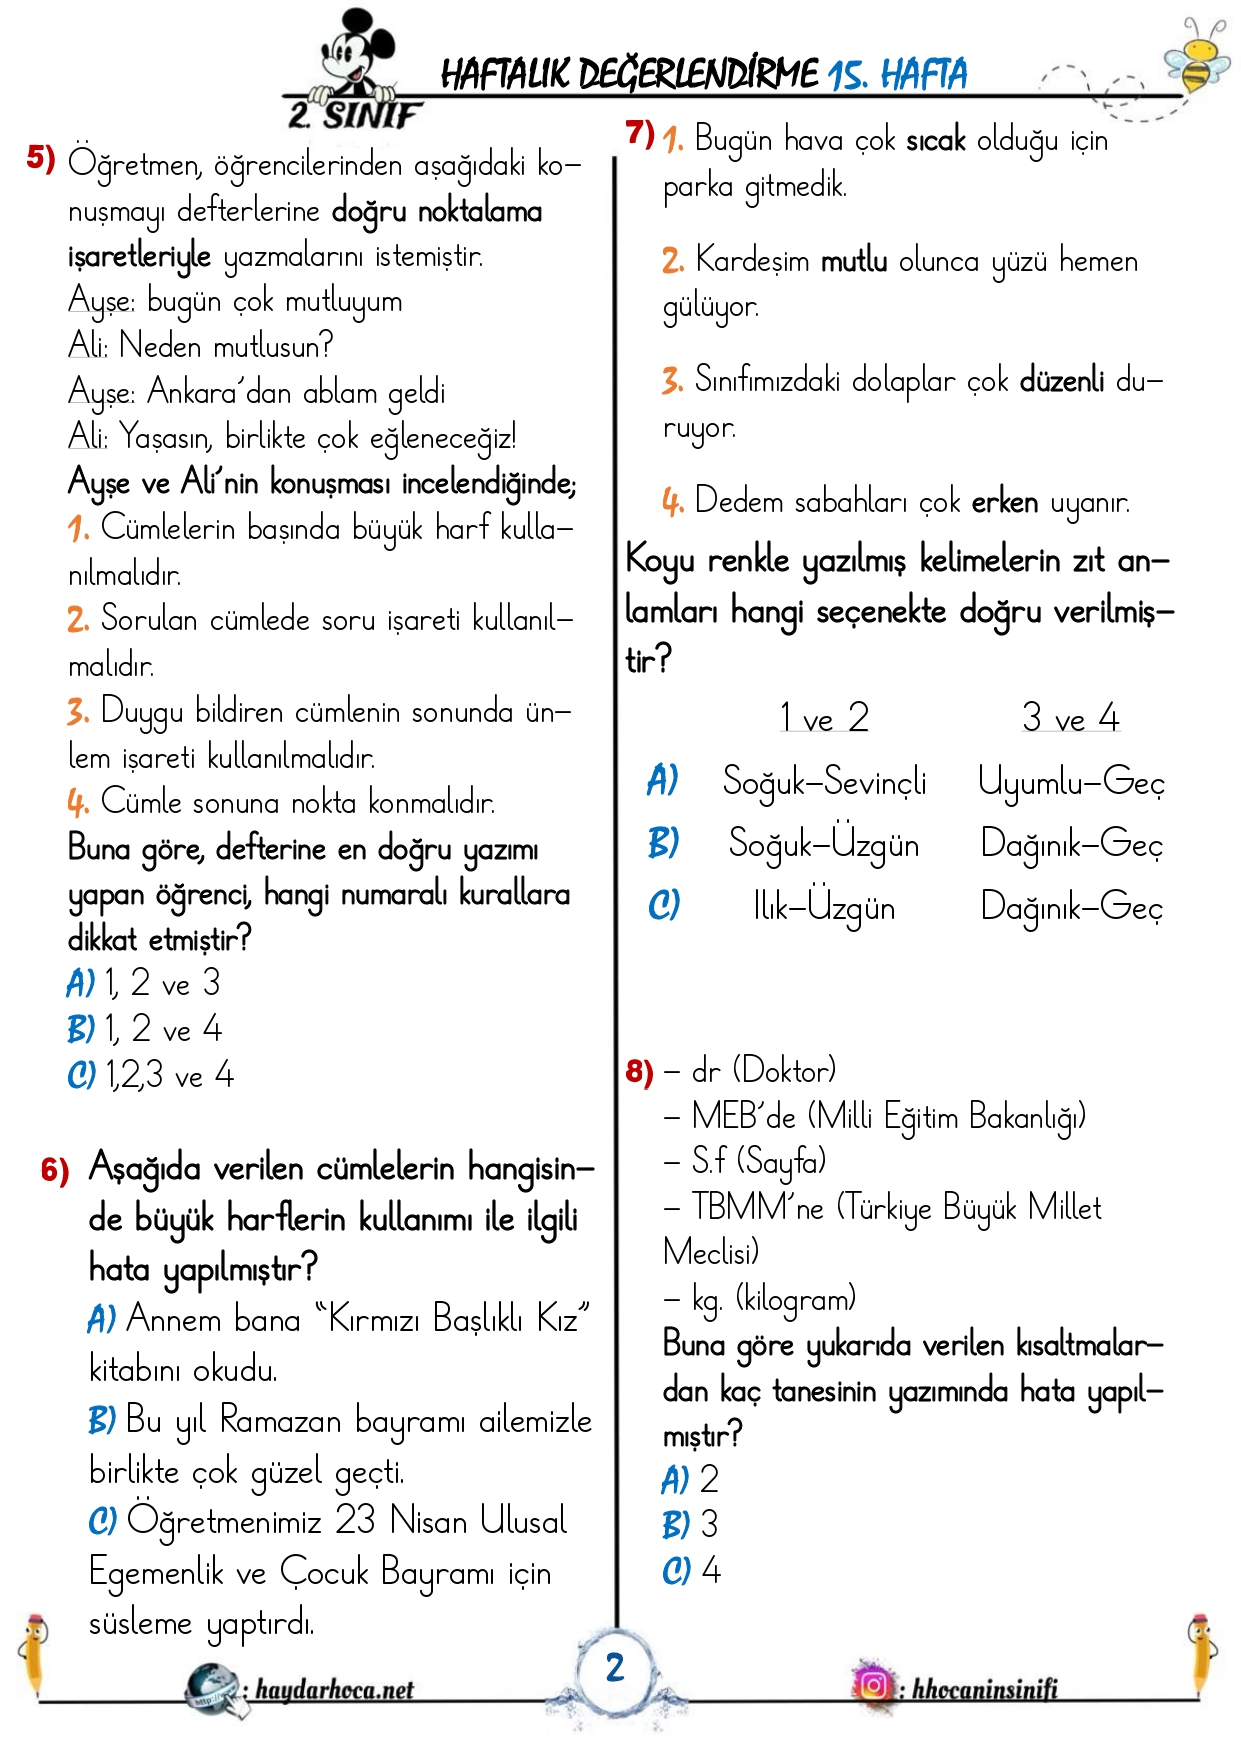 HAFTALIK DEĞERLENDİRME 15. HAFTA
2. SINIF
5) Öğretmen, öğrencilerinden aşağıdaki ko-
nuşmayı defterlerine doğru noktalama
işaretleriyle yazmalarını istemiştir.
Ayşe: bugün çok mutluyum
Ali: Neden mutlusun?
Ayşe: Ankara'dan ablam geldi
Ali: Yaşasın, birlikte çok eğleneceğiz!
Ayşe ve Ali'nin konuşması incelendiğinde;
1. Cümlelerin başında büyük harf kulla-
nılmalıdır.
2. Sorulan cümlede soru işareti kullanıl-
malıdır.
3. Duygu bildiren cümlenin sonunda ün-
lem işareti kullanılmalıdır.
4. Cümle sonuna nokta konmalıdır.
Buna göre, defterine en doğru yazımı
yapan öğrenci, hangi numaralı kurallara
dikkat etmiştir?
A) 1, 2 ve 3
B) 1, 2 ve 4
C) 1,2,3 ve 4
6) Aşağıda verilen cümlelerin hangisin-
de büyük harflerin kullanımı ile ilgili
hata yapılmıştır?
A) Annem bana “Kırmızı Başlıklı Kız”
kitabını okudu.
B) Bu yıl Ramazan bayramı ailemizle
birlikte çok güzel geçti.
C) Öğretmenimiz 23 Nisan Ulusal
Egemenlik ve Çocuk Bayramı için
süsleme yaptırdı.
7) 1. Bugün hava çok sıcak olduğu için
parka gitmedik.
2. Kardeşim mutlu olunca yüzü hemen
gülüyor.
3. Sınıfımızdaki dolaplar çok düzenli du-
ruyor.
4. Dedem sabahları çok erken uyanır.
Koyu renkle yazılmış kelimelerin zıt an-
lamları hangi seçenekte doğru verilmiş-
tir?
1 ve 2 3 ve 4
A) Soğuk-Sevinçli Uyumlu-Geç
B) Soğuk-Üzgün Dağınık-Geç
C) Ilık-Üzgün Dağınık-Geç
8) - dr (Doktor)
- MEB'de (Milli Eğitim Bakanlığı)
- S.f (Sayfa)
- TBMM'ne (Türkiye Büyük Millet
Meclisi)
- kg. (kilogram)
Buna göre yukarıda verilen kısaltmalar-
dan kaç tanesinin yazımında hata yapıl-
mıştır?
A) 2
B) 3
C) 4
http://
: haydarhoca.net
2
: hhocaninsinifi